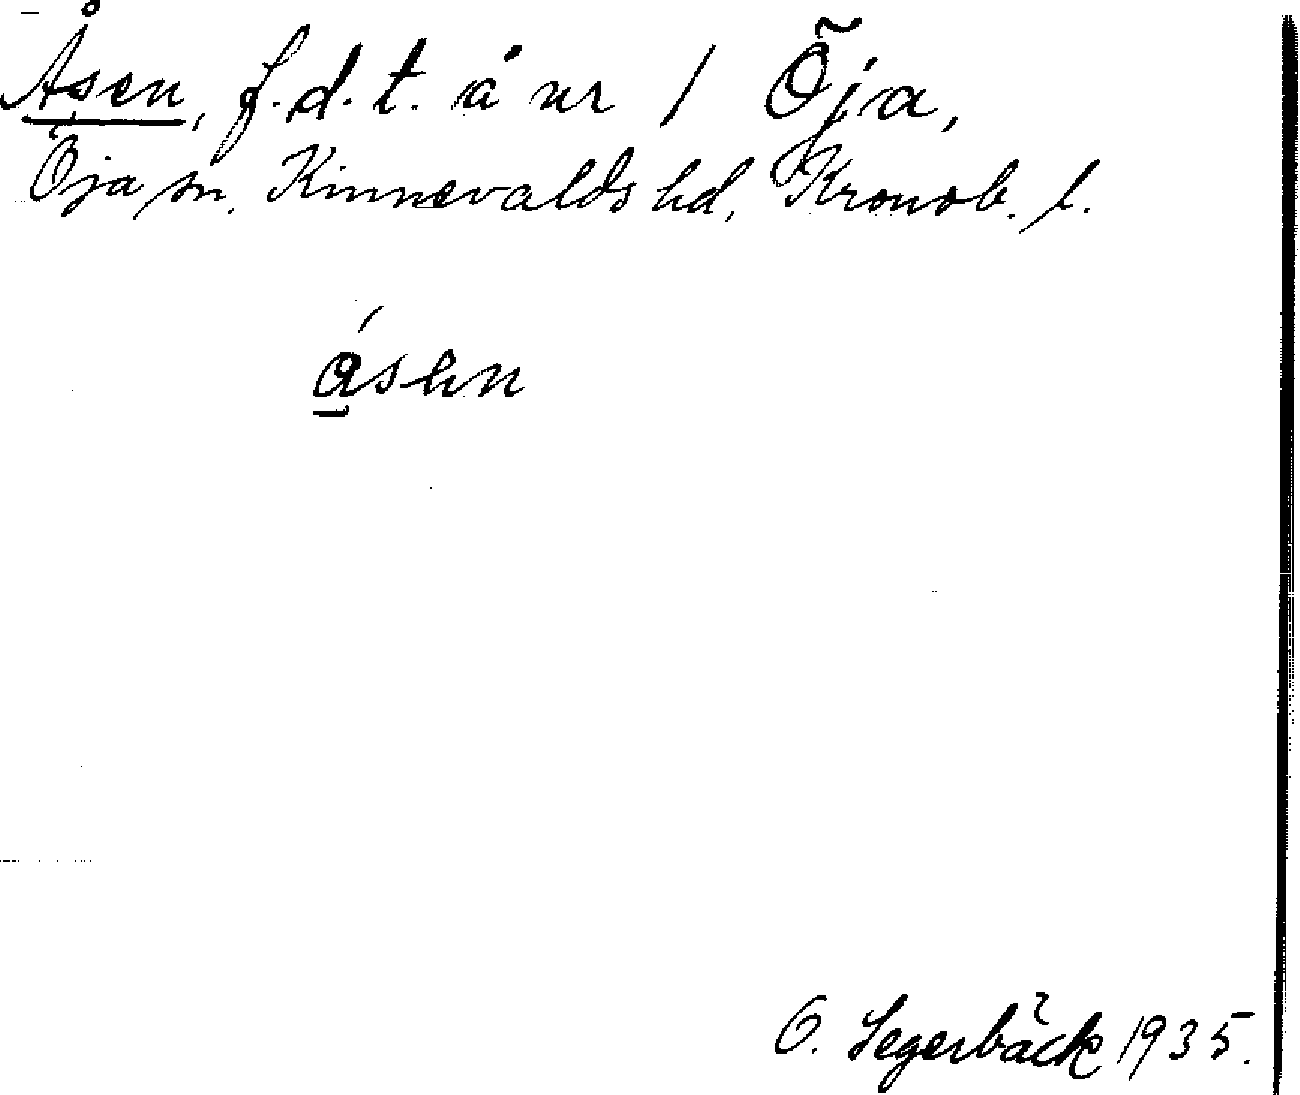 Åsen, f.d.t. å nr 1 Öja,
Öja sn, Kinnevalds hd, Kronob. l.
åsen
O. Segerbäck 1935.